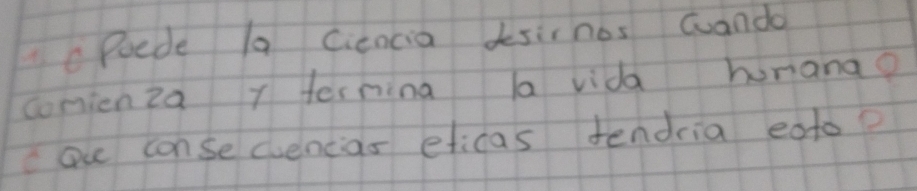 ¿Puede la ciencia desirnos cuando
comienza y termina la vida humana?
¿Que consecuencias eticas tendria esto?